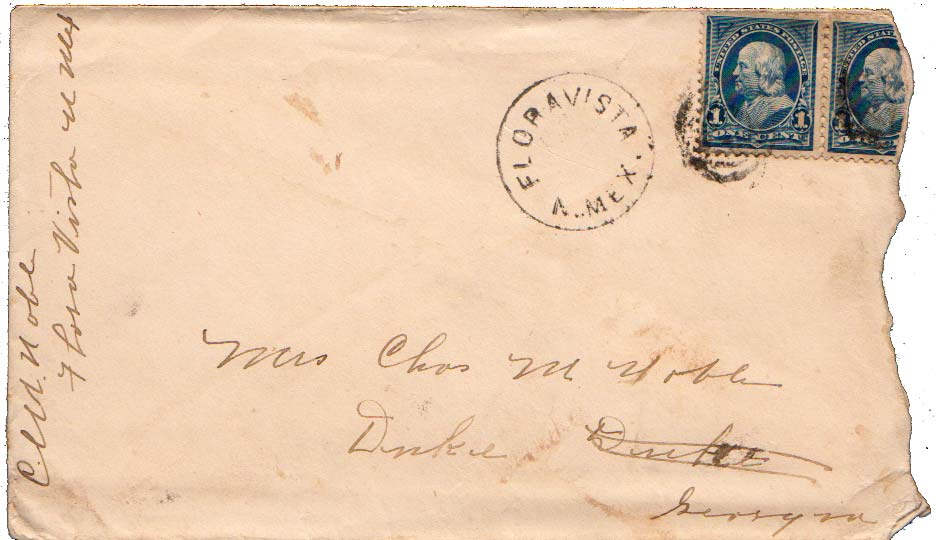 C M Noble
Flora Vista N Mex
FLORAVISTA
N. MEX.
UNITED STATES POSTAGE
1 1
ONE CENT
UNITED STATES
1
ONE CENT
Mrs Chas M Noble
Duke Duke
Georgia